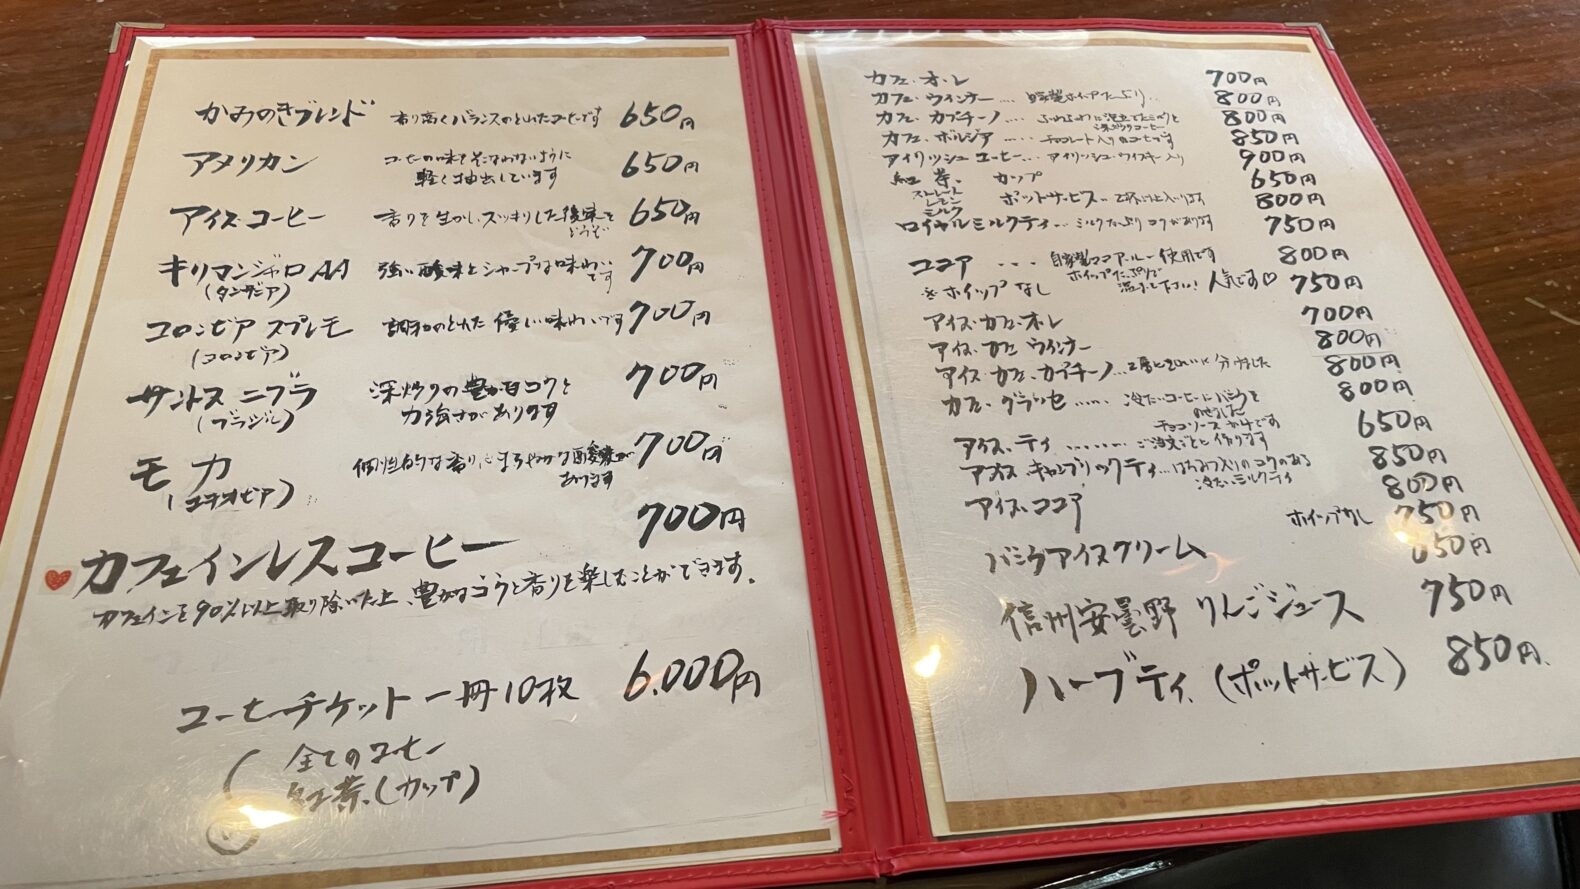 かみのきブレンド 香り高くバランスのとれたコーヒーです 650円
アメリカン コーヒーの味をそこなわないように 650円
軽く抽出しています
アイス・コーヒー 香りを生かしスッキリした後味を 650円
どうぞ
キリマンジャロAA 強い酸味とシャープな味わい 700円
です
(タンザニア)
コロンビア スプレモ 調和のとれた優しい味わいです 700円
(コロンビア)
サントス ニブラ 深炒りの豊かなコクと 700円
力強さがあります
(ブラジル)
モカ 個性的な香りとまろやかな酸味が 700円
あります
(エチオピア)
700円
カフェインレスコーヒー
カフェインを90%以上取り除いた上、豊かなコクと香りを楽しむことができます。
コーヒーチケット 一冊10枚 6.000円
全てのコーヒー
紅茶(カップ)
カフェ・オ・レ 700円
カフェ・ウィンナー.... 自家製ホイップたっぷり.. 800円
カフェ・カプチーノ.... ふわふわに泡立てたミルクと 800円
深炒りコーヒー
カフェ・ボルジア.... チョコレート入りのコーヒーです 850円
アイリッシュコーヒー... アイリッシュ・ウイスキー入り 900円
紅茶 カップ 650円
ストレート
レモン
ミルク
ポットサービス.. 2杯以上入ります 800円
ロイヤルミルクティ... ミルクたっぷりコクがあります 750円
ココア .... 自家製ココア・ルー使用です 800円
ホイップたっぷりで
温まって下さい! 人気です♡
※ホイップなし 750円
アイス・カフェ・オ・レ 700円
アイス・カフェ ウインナー 800円
アイス・カフェ・カプチーノ... 2層ときれいに分かれた 800円
カフェ・グラッセ..... 冷たいコーヒーにバニラを 800円
のせました
チョコソースがけです
アイス・ティ ....... ご注文ごとに作ります 650円
アイス キャンブリックティ... はちみつ入りのコクのある 850円
冷たいミルクティ
アイス・ココア 800円
ホイップなし 750円
バニラアイスクリーム 650円
信州安曇野 りんごジュース 750円
ハーブティ (ポットサービス) 850円